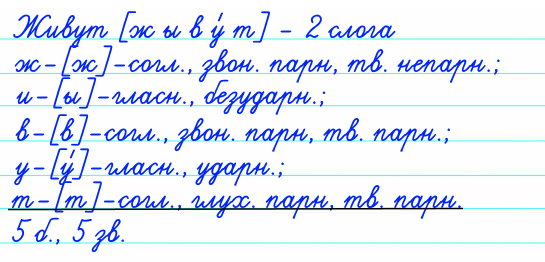 Живут [ж ы в у́ т] – 2 слога
ж–[ж]–согл., звон. парн, тв. непарн.;
и–[ы]–гласн., безударн.;
в–[в]–согл., звон. парн, тв. парн.;
у–[у́]–гласн., ударн.;
т–[т]–согл., глух. парн, тв. парн.
5 б., 5 зв.